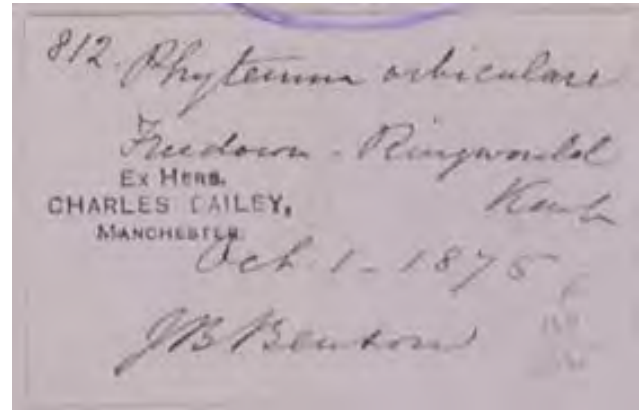 812. Phyteuma orbiculare
Freedown - Ringwould
Ex Herb.
CHARLES BAILEY,
Kent
MANCHESTER.
Oct. 1 - 1875
J B